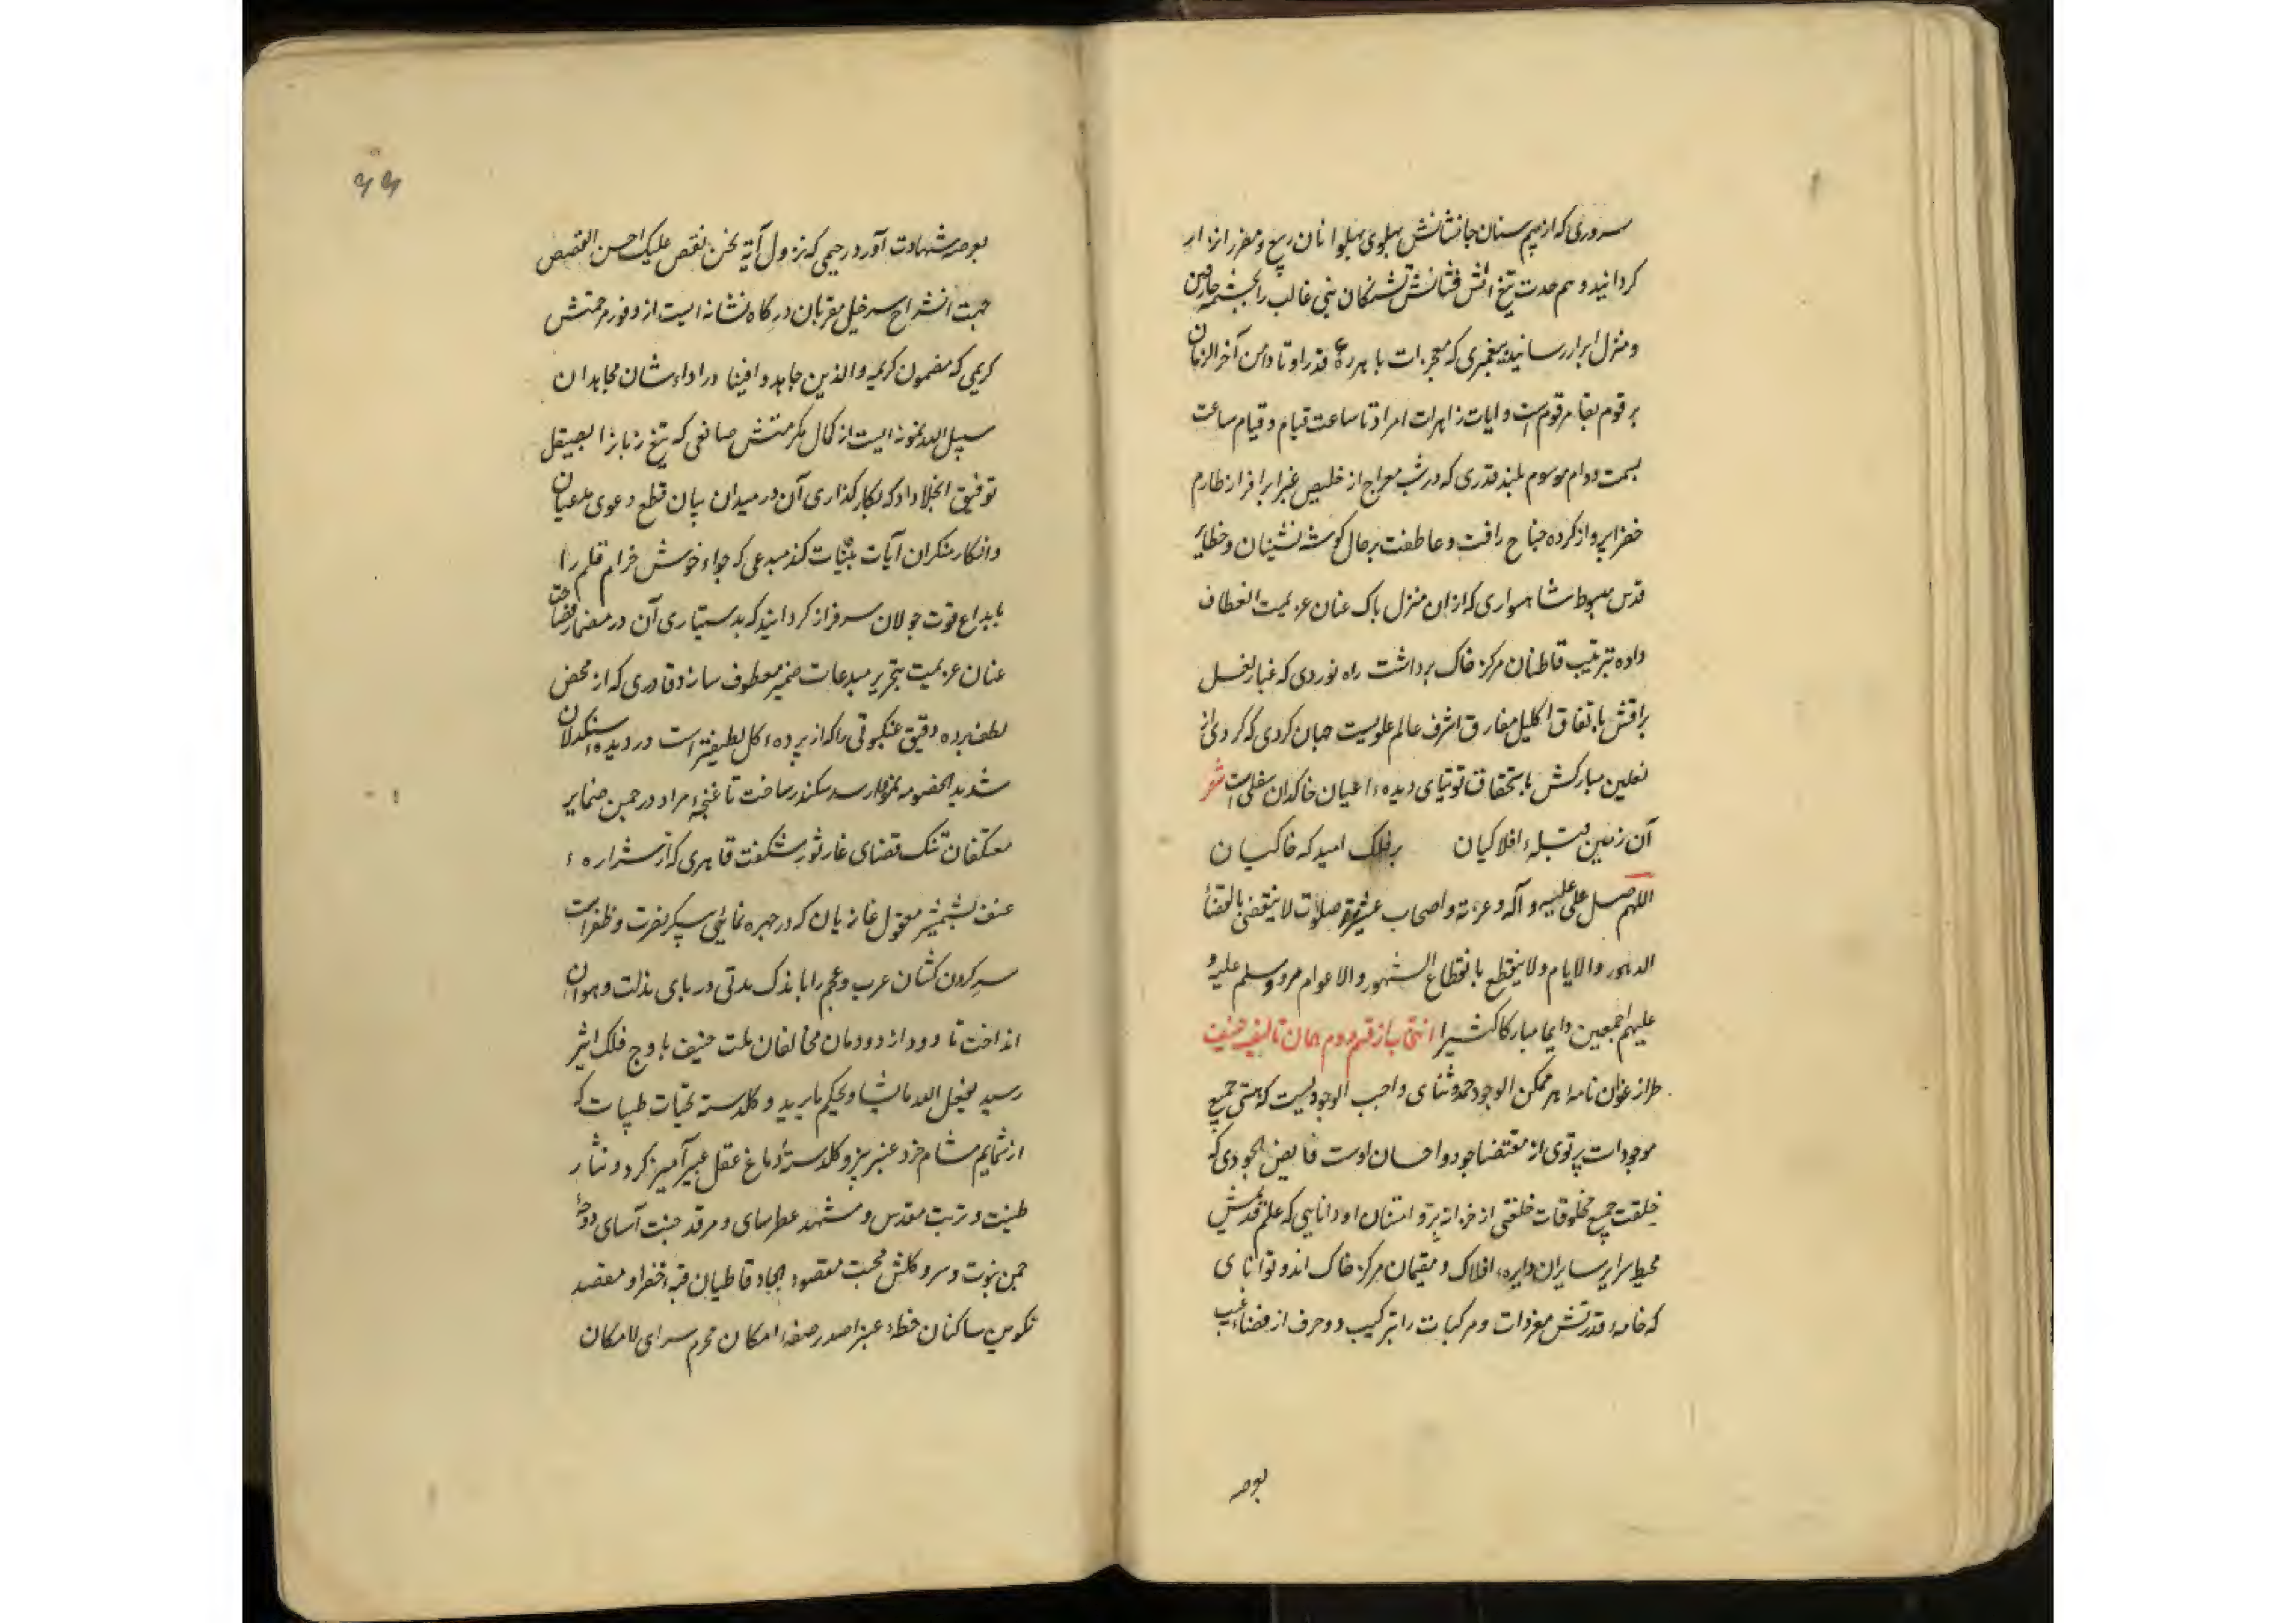 سروری که از بیم سنان جانشانش پهلوی پهلوانان ربیع و مضر را نزار
کردانید و هم حدت تیغ اتش فشانش تشنکان بنی غالب را بچشمه
و منزل ابرار رسانید پیغمبری که معجزات باهره قدر او تا دامن آخر الزمان
بر قوم بقا مرقوم است و ایات زاهرات امر او تا ساعت قیام و قیام ساعت
بسمت دوام موسوم بلند قدری که در شب معراج از حضیض غبرا بر افراز طارم
خضرا پرواز کرده جناح رافت و عاطفت بر حال کوشه نشینان و حظایر
قدس مبسوط شاهسواری که از ان منزل پاک عنان عزیمت انعطاف
داده بترتیب قاطنان مرکز خاک برداشت راه نوردی که غبار نعل
براقش باتفاق اکلیل مفارق اشرف عالم علویست جهان کردی که کرد
نعلین مبارکش باستحقاق توتیای دیده اعیان خاکدان سفلی است شعر
آن زمین قبله افلاکیان بر فلک امید که خاکیان
اللهم صل علی علیه و آله و عترته و اصحاب صلات لا ینقضی بانقضا
الدهور و الایام و لا ینقطع بانقطاع الشهور و الاعوام و سلم علیه و
علیهم اجمعین دایما مبارکا کثیرا انتخاب از قسم دوم همان تالیف حنیف
طراز عنوان نامه هر ممکن الوجود حمد و ثنای واجب الوجودیست که هستی جمیع
موجودات پرتوی از مقتضا جود و احسان اوست فایض الجودی که
خلقت جمیع مخلوقات خلقتی از خزانه بر و امتنان او دانایی که علم قدیمش
محیط سرایر سایران دایره افلاک و مقیمان مرکز خاک اند و توانای
که خامه قدرتش مفردات و مرکبات را بترکیب دو حرف از فضاء غیب
بعرصه
بعرصه شهادت آورد رحیمی که نزول آیة نحن نقص علیک احسن القصص
جهت انشراح سرخیل مقربان درکاه نشانه ایست از وفور مرحمتش
کریمی که مضمون کریمه و الذین جاهدوا فینا در اداء شان مجاهدان
سبیل الله نمونه ایست از کمال مکرمتش صانعی که تیغ زبانرا بصیقل
توفیق انجلا داد که بکارکذاری آن در میدان بیان قطع دعوی مدعیان
و انکار منکران آیات بینات کند مبدعی که جواد خوش خرام قلم را
بابداع قوت جولان سرافراز کردانید که بدستیاری آن در مضمار فصاحت
عنان عزیمت بتحریر مبدعات ضمیر معطوف سازد قادری که از محض
لطف پرده دقیق عنکبوتی را که از پرده کل لطیفتر است در دیده سنکدلان
شدید الخصومه نمودار سد سکندر ساخت تا غنچه مراد در چمن ضمایر
معتکفان تنک فضای غار ثور شکفت قاهری که از شراره
عنف شمشیر مصقول غازیان که در چهره نمایئ پیکر نصرت و ظفر است
سر کردن کشان عرب و عجم را باندک مدتی در پای مذلت و هوان
انداخت تا دود از دودمان مخالفان ملت حنیف باوج فلک اثیر
رسید یفعل الله ما یشاء و یحکم ما یرید و کلدسته تحیات طیبات که
از شمایم مشام خرد عنبر بیز و کلدسته دماغ عقل عبیر آمیز کردد نثار
طینت و تربت مقدس و مشهد عطرسای و مرقد جنت آسای دوحه
چمن نبوت و سرو کلشن محبت مقصود ایجاد قاطبان قبه خضرا و مقصد
تکوین ساکنان خطه غبرا صدر صفه امکان محرم سرای لامکان